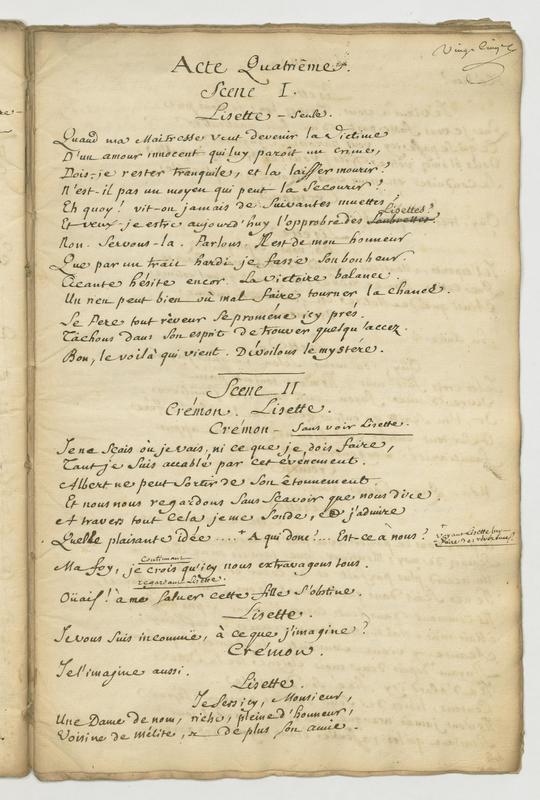 Vingt Cinq
Acte Quatriême.
Scene I.
Lisette - seule.
Quand ma Maitresse veut devenir la Victime
D'un amour innocent qui luy paroît un crime,
Dois-je rester tranquile, et la laisser mourir?
N'est-il pas un moyen qui peut la Secourir?
Eh quoy! vit-on jamais de Suivantes muettes?
Lisettes?
Et veux-je estre aujourd'huy l'opprobre des Soubrettes?
Non. Servons-la. Parlons. Il est de mon honneur
Que par un trait hardi je fasse Son bonheur.
Cleante hésite encor. La victoire balance.
Un rien peut bien ou mal faire tourner la chance.
Le Pere tout rêveur Se proméne icy prés.
Tâchons dans Son esprit de trouver quelqu'accez.
Bon, le voilà qui vient. Dévoilons le mystére.
Scene II
Crémon. Lisette.
Crémon - Sans voir Lisette.
Je ne Sçais où je vais, ni ce que je dois faire,
Tant je Suis accablé par cet évenement.
Albert ne peut Sortir de Son étonnement.
Et nous nous regardons Sans Scavoir que nous dire.
et à travers tout cela je me Sonde, et j'admire
Quelle plaisante idée .... + A qui donc!... Est-ce à nous?
+ voyant Lisette luy faire des révérences
Continuant
Ma foy, je crois qu'icy nous extravagons tous.
regardant Lisette.
Oüais! à me Saluer cette fille S'obstine.
Lisette.
Je vous Suis inconnuë, à ce que j'imagine?
Crémon.
Je l'imagine aussi.
Lisette.
Je Sers icy, Monsieur,
Une Dame de nom, riche, pleine d'honneur,
Voisine de Mélite, & de plus Son amie.